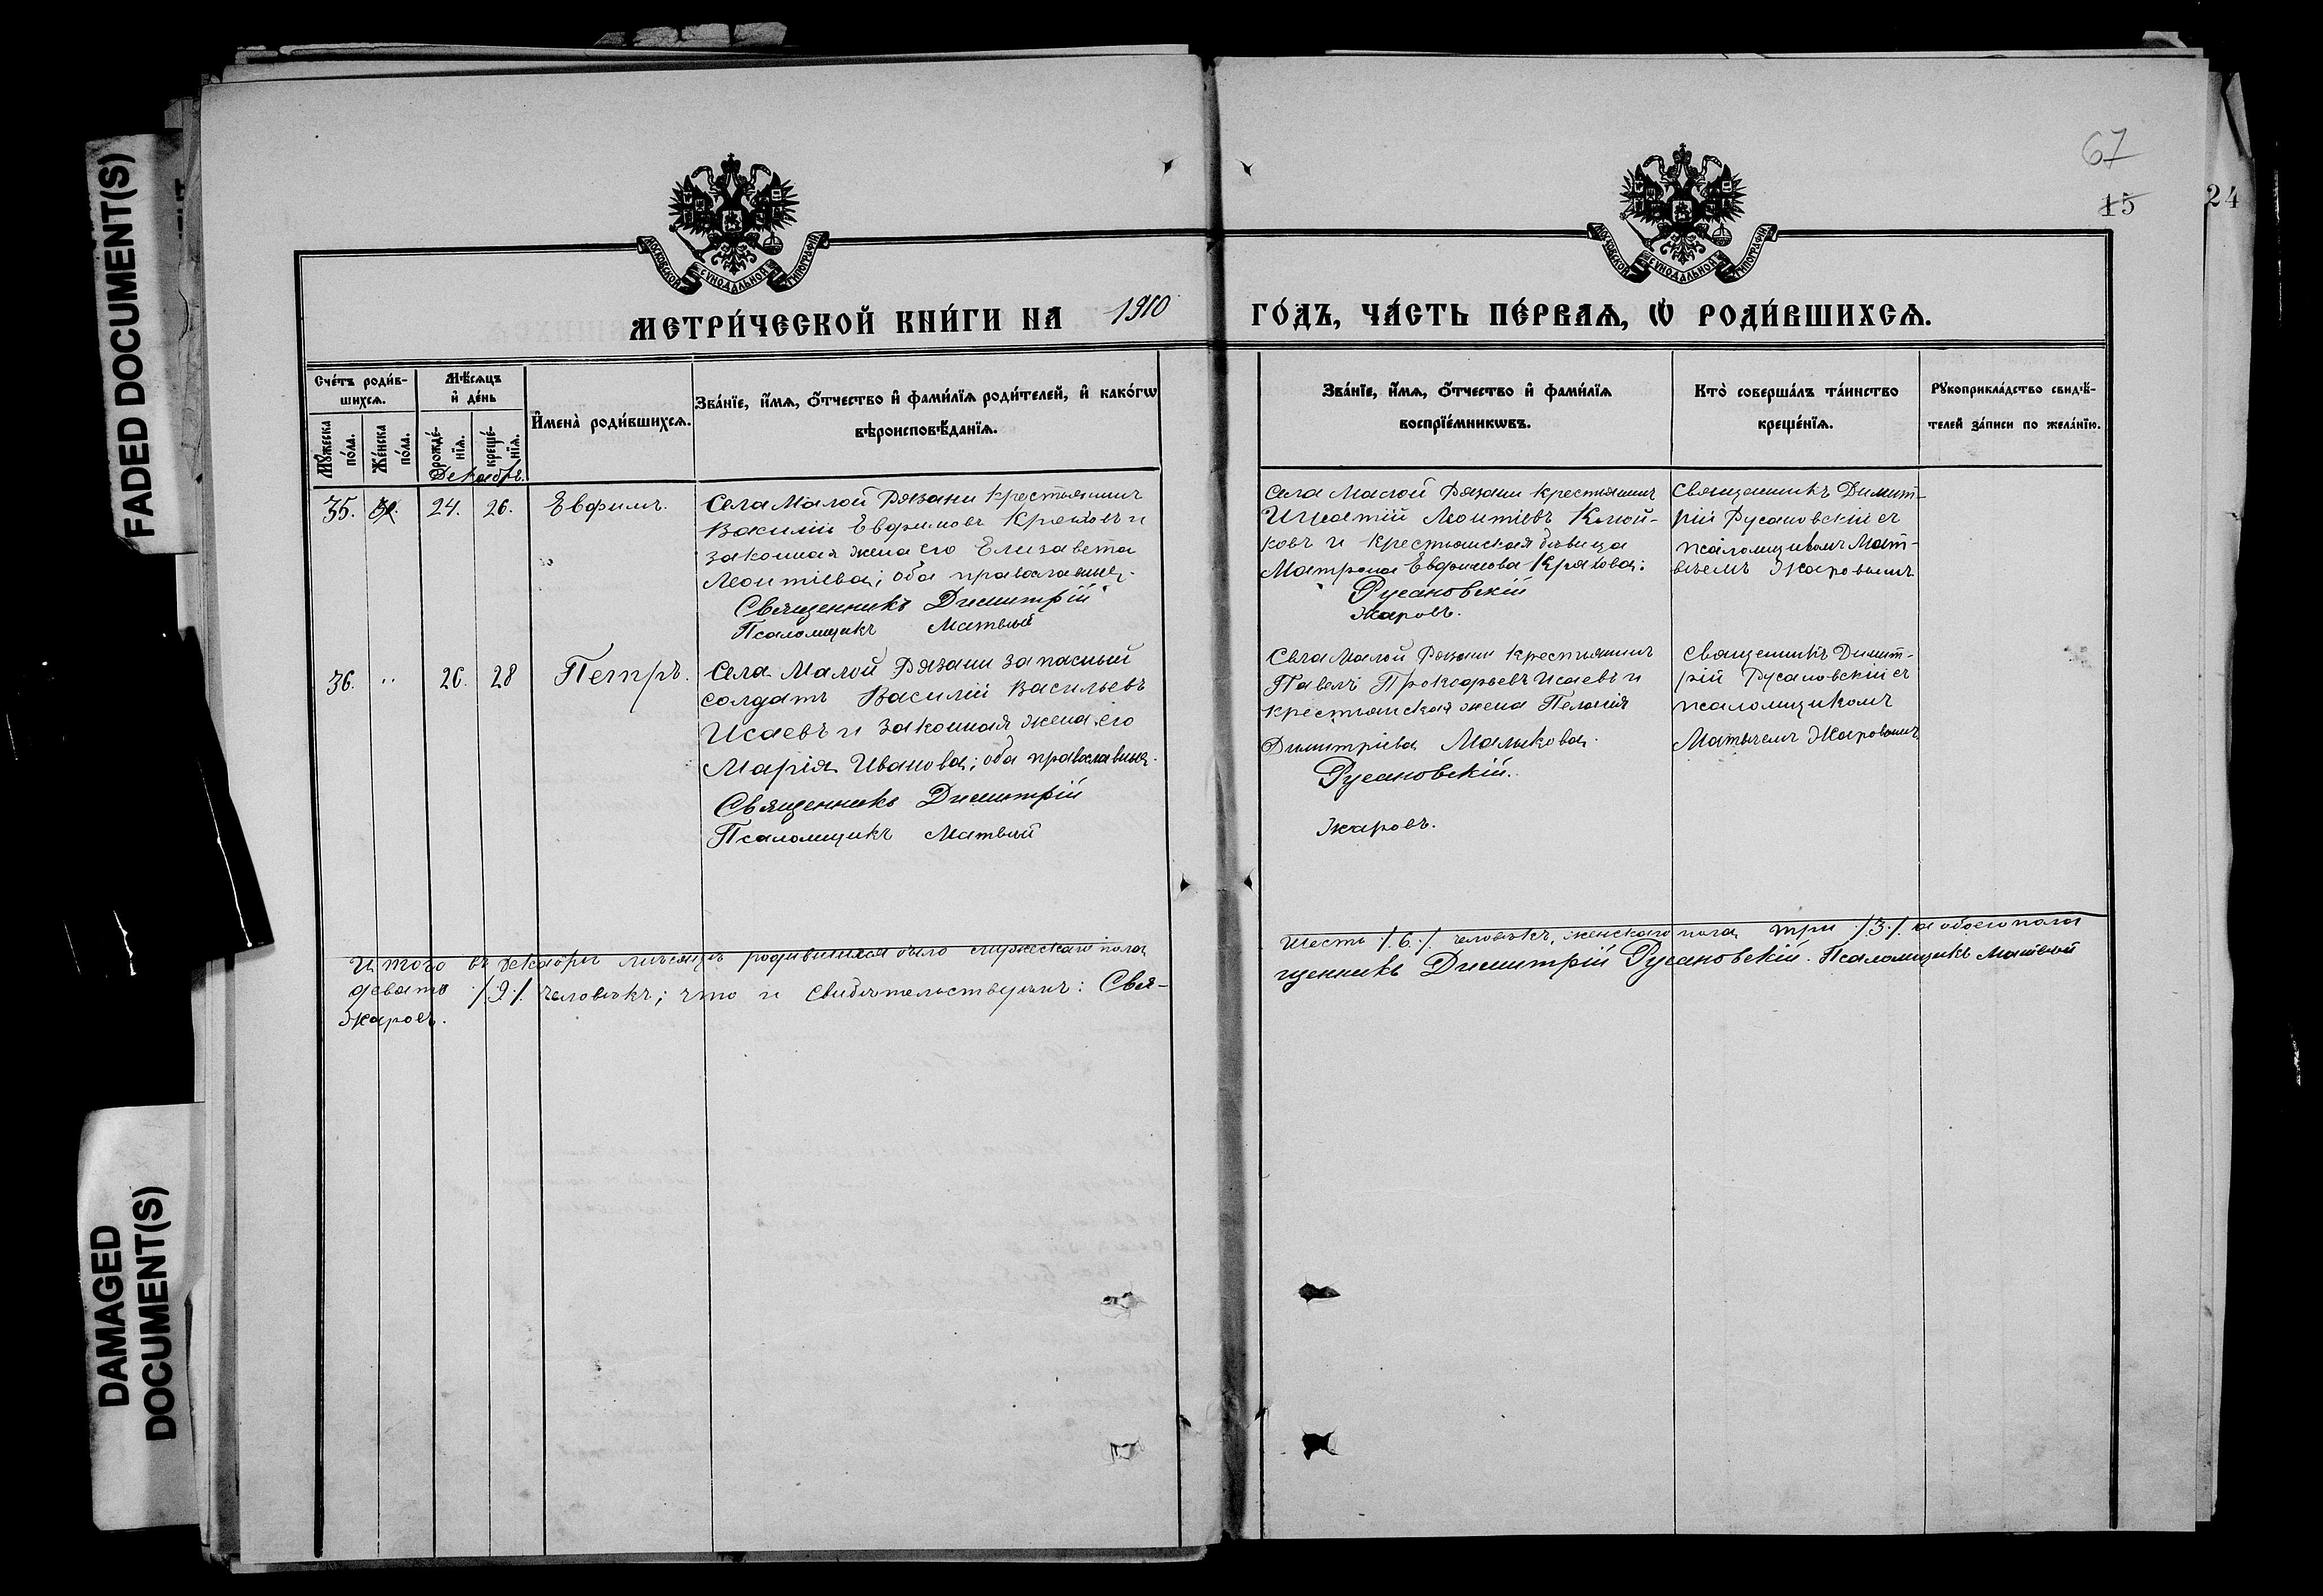 FADED DOCUMENT(S)
DAMAGED
DOCUMENT(S)
67
15
24
МОСКОВСКОЙ СѴНОДАЛЬНОЙ ТИПОГРАФІИ
МОСКОВСКОЙ СѴНОДАЛЬНОЙ ТИПОГРАФІИ
МЕТРИ́ЧЕСКОЙ КНИ́ГИ НА 1910
ГО́ДЪ, ЧА́СТЬ ПЕ́РВАЯ, Ѡ РОДИ́ВШИХСѦ.
Сче́тъ роди́в-
шихсѧ.
Мꙋ́жеска
по́ла.
Же́нска
по́ла.
Мѣ́сѧцъ
и҆ де́нь
рожде́-
нїѧ.
креще́-
нїѧ.
Декабрь.
И҆мена̀ роди́вшихсѧ.
Зва́нїе, и҆́мѧ, ѻ҆́тчество и҆ фами́лїѧ роди́телей, и҆ како́гѡ
вѣроисповѣ́данїѧ.
Зва́нїе, и҆́мѧ, ѻ҆́тчество и҆ фами́лїѧ
воспрїе́мникѡвъ.
Кто̀ соверша́лъ та́инство
креще́нїѧ.
Рꙋкоприкла́дство свидѣ́-
телей за́писи по жела́нїю.
35.
24.
26.
Евфимъ.
Села Малой Рязани крестьянинъ
Василій Евфимовъ и
законная жена его Елизавета
Леонтіева; оба православные.
Священникъ Димитрій
Псаломщикъ Матвѣй
Села Малой Рязани крестьянинъ
Игнатій Леонтіевъ
ковъ и крестьянская дѣвица
Матрона Евфимова
Русановскій
Жаровъ.
Священникъ Димит-
рій Русановскій съ
псаломщикомъ Мат-
вѣемъ Жаровымъ
36.
"
26.
28
Петръ.
Села Малой Рязани запасный
солдатъ Василій Васильевъ
Исаевъ и законная жена его
Марія Иванова; оба православные.
Священникъ Димитрій
Псаломщикъ Матвѣй
Села Малой Рязани крестьянинъ
Павелъ Прокофьевъ Исаевъ и
крестьянская жена Пелагія
Димитріева Малыкова.
Русановскій.
Жаровъ.
Священникъ Димит-
рій Русановскій съ
псаломщикомъ
Матвѣемъ Жаровымъ
Итого въ декабрѣ мѣсяцѣ родившихся было мужескаго пола
шесть /.6./. человѣкъ, женскаго пола три /.3./. а обоего пола
девять /.9./. человѣкъ; что и свидѣтельствуемъ: Свя-
щенникъ Димитрій Русановскій. Псаломщикъ Матвѣй
Жаровъ.